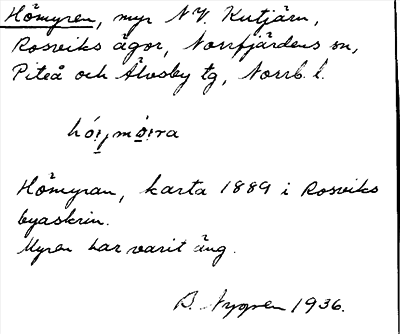 Hömyren, myr NV. Kutjärn,
Rosviks ägor, Norrfjärdens sn,
Piteå och Älvsby tg, Norrb. l.
Hömyran, karta 1889 i Rosviks
byaskrin.
Myren har varit äng.
B. Nygren 1936.